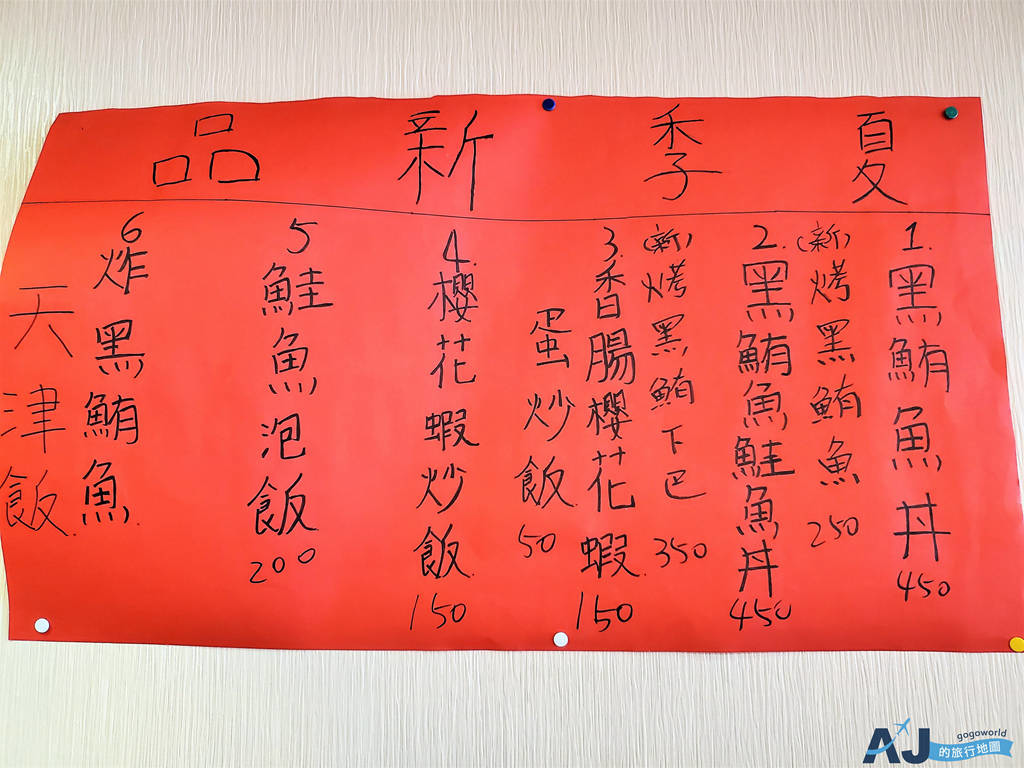 夏季新品
1.黑鮪魚丼450
(新)烤黑鮪魚250
2.黑鮪魚鮭魚丼450
(新)烤黑鮪下巴350
3.香腸櫻花蝦150
蛋炒飯50
4.櫻花蝦炒飯150
5鮭魚泡飯200
6炸黑鮪魚.
天津飯.
AJ gogoworld
的旅行地圖